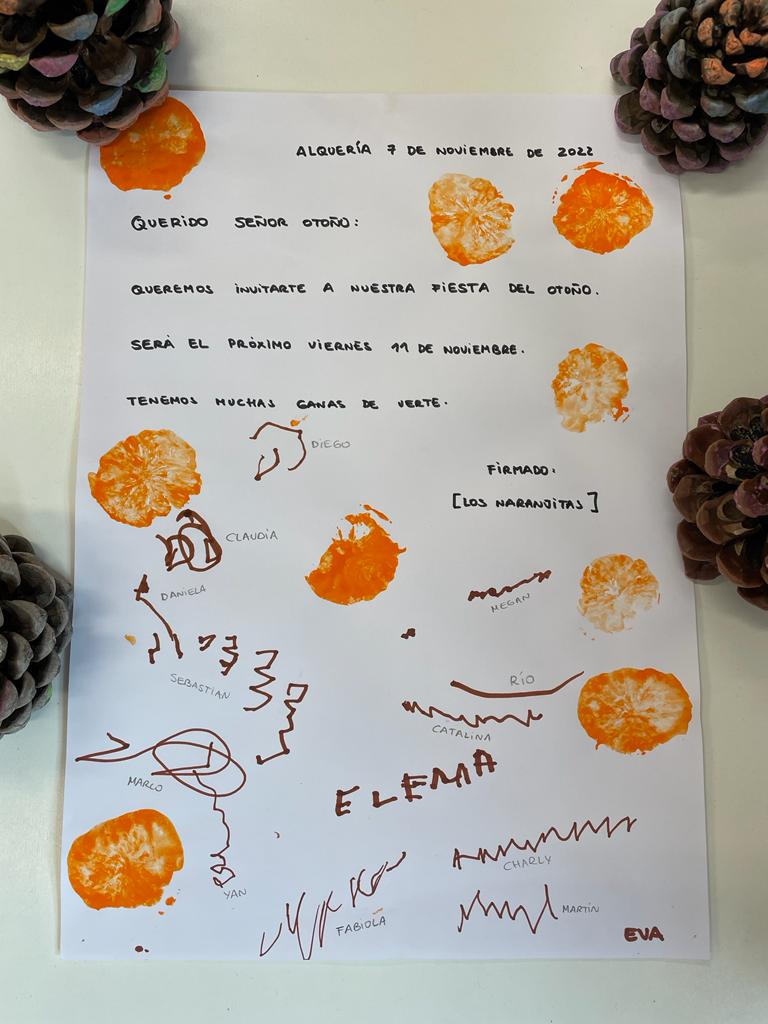 ALQUERÍA 7 DE NOVIEMBRE DE 2022
QUERIDO SEÑOR OTOÑO:
QUEREMOS INVITARTE A NUESTRA FIESTA DEL OTOÑO.
SERÁ EL PRÓXIMO VIERNES 11 DE NOVIEMBRE.
TENEMOS MUCHAS GANAS DE VERTE.
DIEGO
FIRMADO:
[LOS NARANJITAS]
CLAUDIA
DANIELA
MEGAN
SEBASTIAN
RÍO
CATALINA
MARCO
ELEMA
CHARLY
YAN
FABIOLA
MARTÍN
EVA